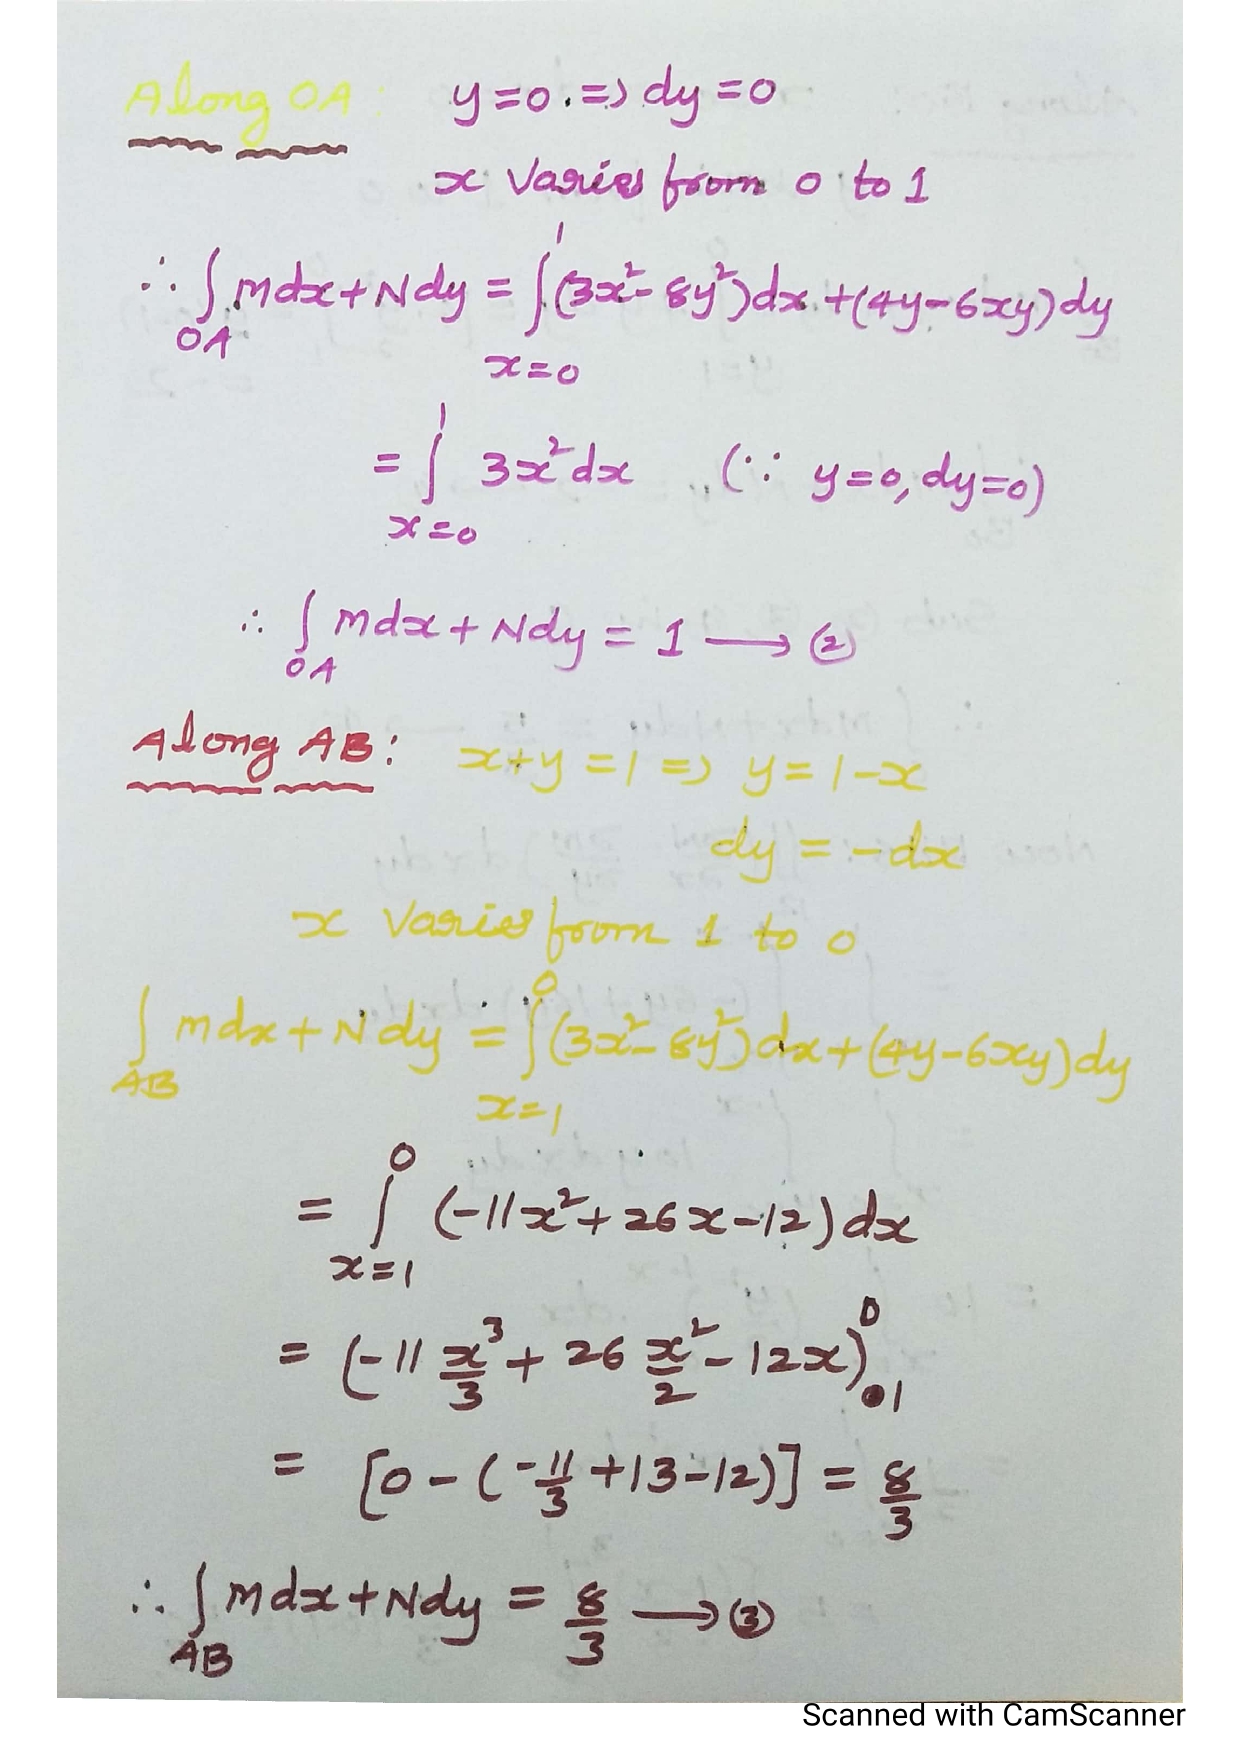 Along OA: y=0. => dy=0
x varies from 0 to 1
∴ ∫_{OA} Mdx+Ndy = ∫_{x=0}^{1} (3x²-8y²)dx+(4y-6xy)dy
= ∫_{x=0}^{1} 3x²dx (∵ y=0, dy=0)
∴ ∫_{OA} Mdx+Ndy = 1 → ②
Along AB: x+y=1 => y=1-x
dy = -dx
x varies from 1 to 0
∫_{AB} Mdx+Ndy = ∫_{x=1}^{0} (3x²-8y²)dx+(4y-6xy)dy
= ∫_{x=1}^{0} (-11x²+26x-12)dx
= (-11 x³/3 + 26 x²/2 - 12x)_{1}^{0}
= [0-(-11/3+13-12)] = 8/3
∴ ∫_{AB} Mdx+Ndy = 8/3 → ③
Scanned with CamScanner